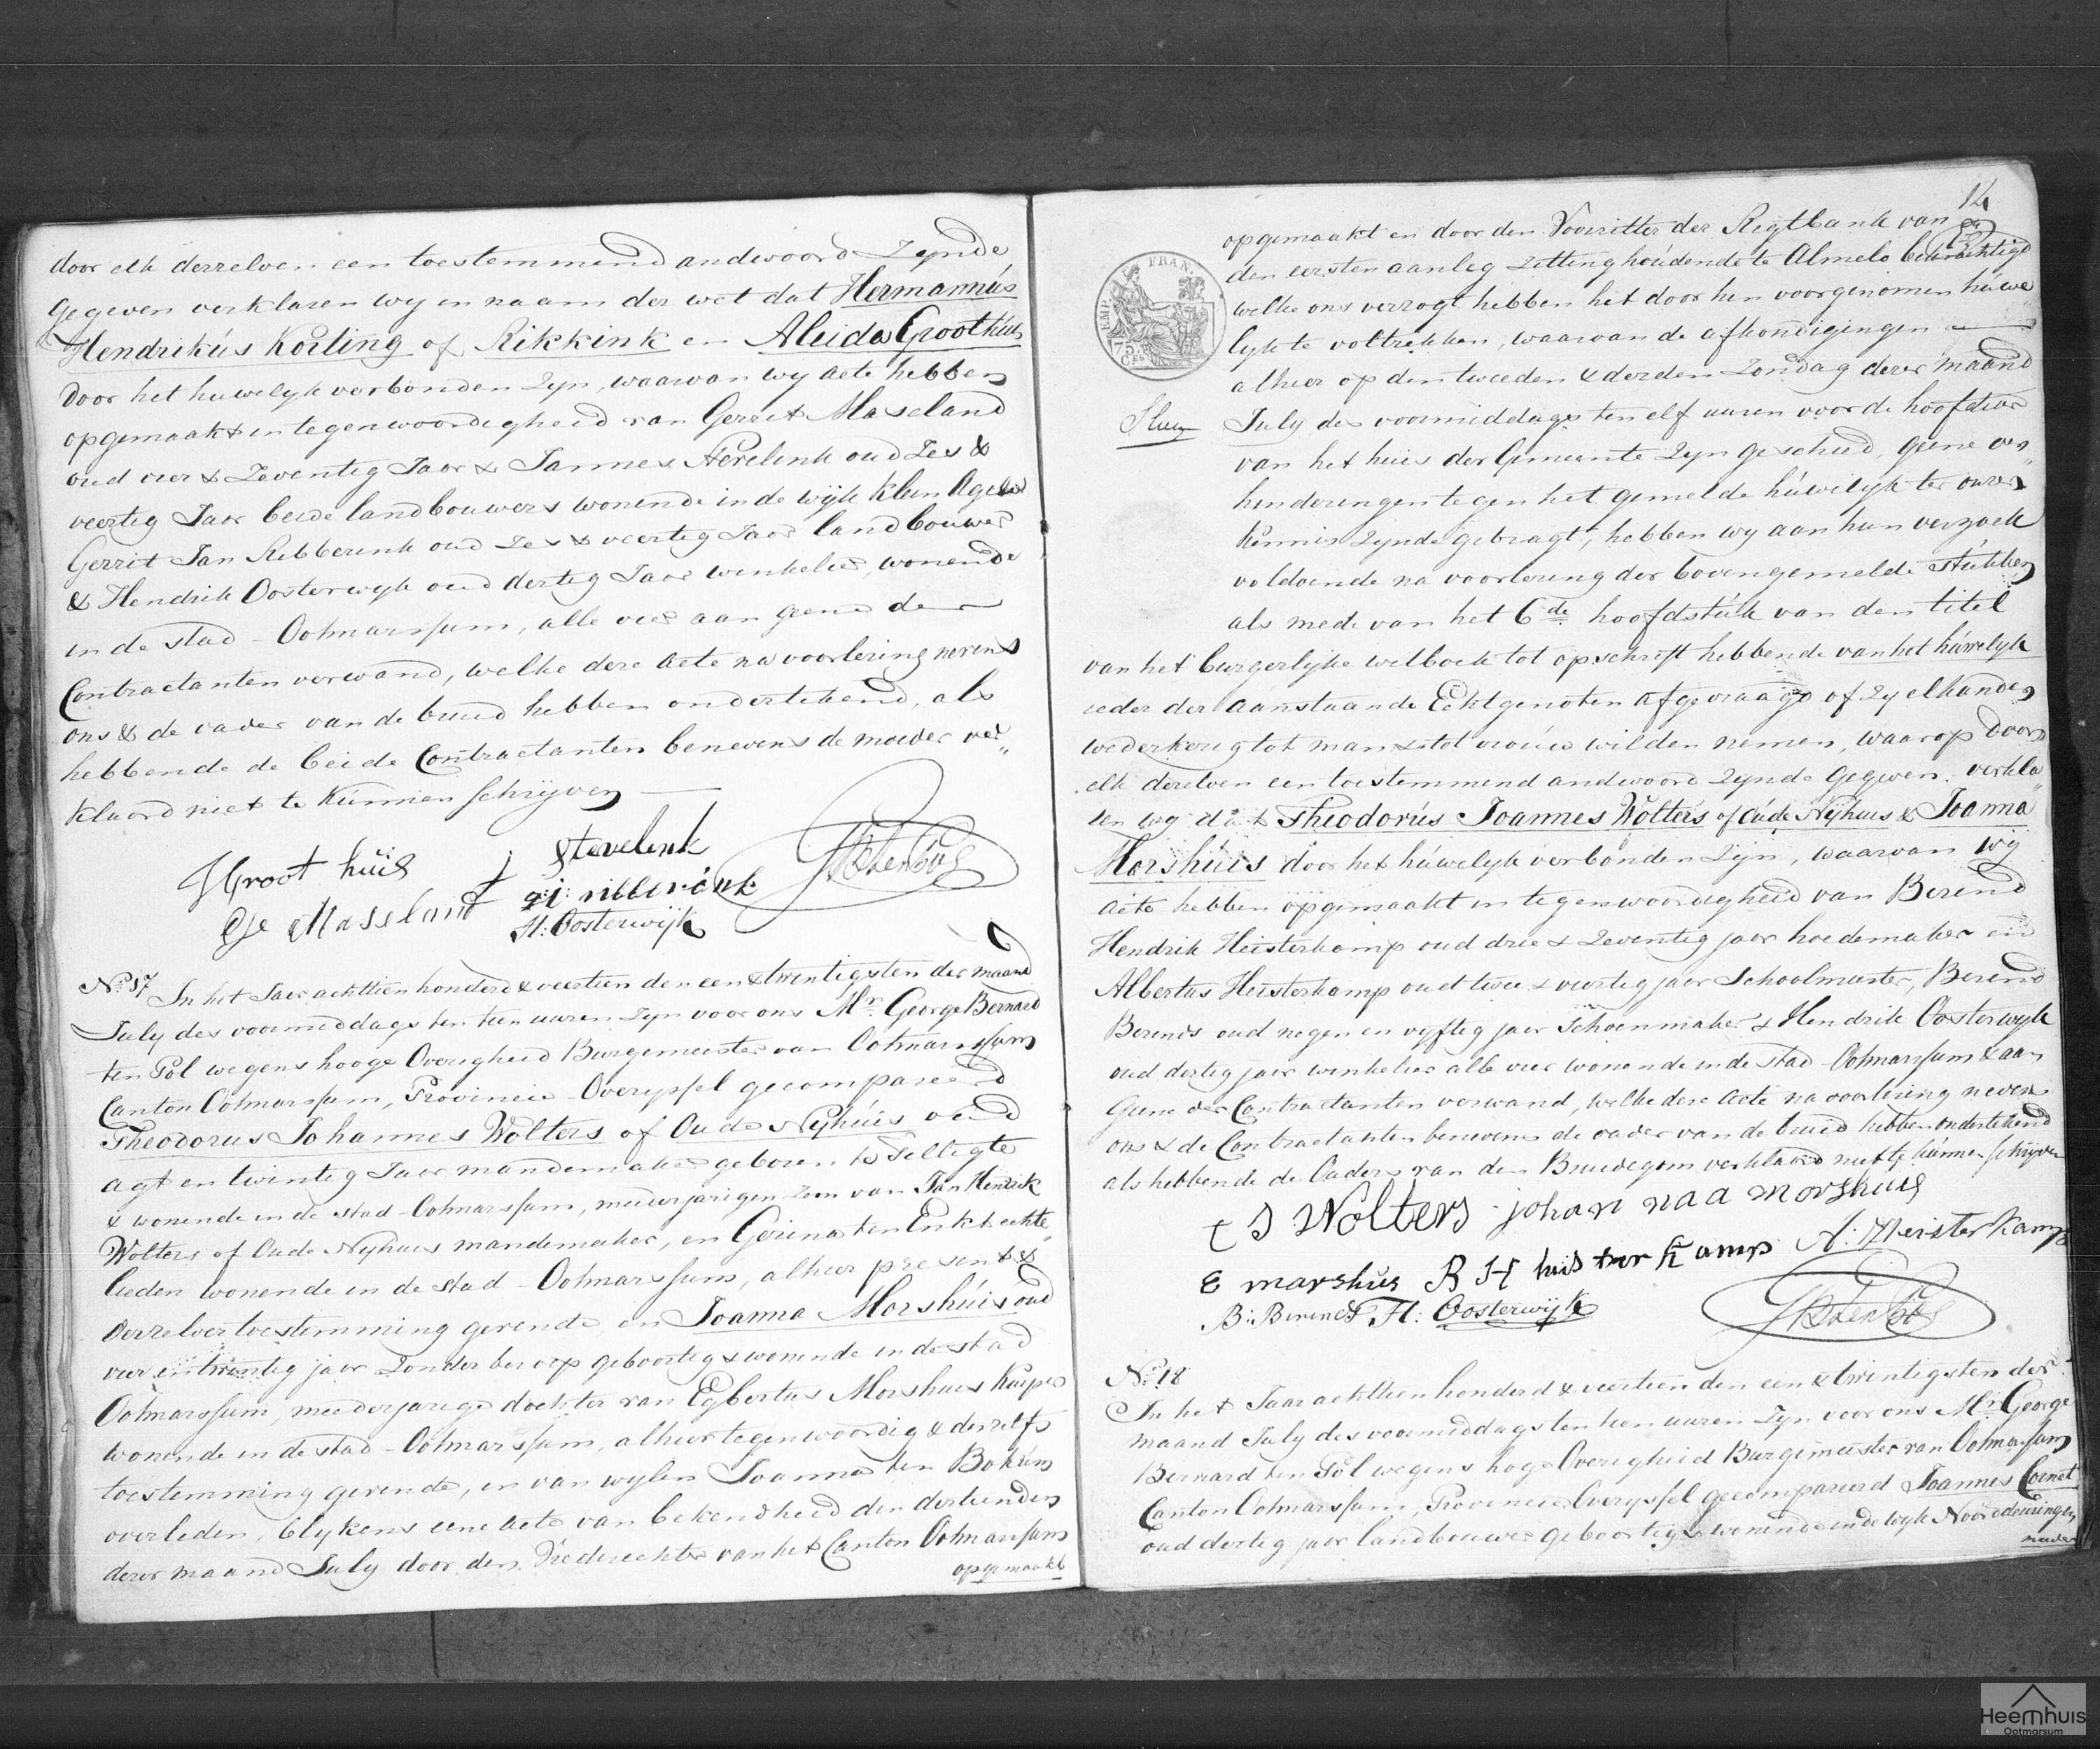 door elk derzelven een toestemmend andwoord Zynde
gegeven verklaren wy in naam der wet dat Hermannus
Hendrikús Koiling of Rikkink en Aleida Groothuis
door het huwelyk verbonden Zyn, waarvan wy Acte hebben
opgemaakt in tegenwoordigheid van Gerrit Maseland
oud vier & Zeventig Jaar & Jannes Stevelink oud Zes &
veertig Jaar beide landbouwers wonende in de wijk klein Agelo
Gerrit Jan Ribberink oud Zes & veertig Jaar landbouwer
& Hendrik Oosterwyk oud dertig Jaar winkelier, wonende
in de stad Ootmarssum, alle vier aan geene der
Contractanten verwand, welke deze Acte na voorlezing nevens
ons & de vader van de bruid hebben ondertekend, als
hebbende de beide Contractanten benevens de moeder ver„
klaard niet te kúnnen schrijven
J Groot huis
j stevelink
Ge Maseland
g:j: ribberink
H: Oosterwijk
GB ten Pol
No. 17 In het Jaar achttien honderd & veertien den een & twintigsten der maand
July des voormiddags ten tien uuren Zyn voor ons Mr. George Bernard
ten Pol wegens hooge Overigheid Burgemeester van Ootmarssum
Canton Ootmarssum, Provincie Overyssel gecompareerd
Theodorus Johannes Wolters of Oude Nyhúis oud
agt en twintig Jaar mandemaker geboren te Tilligte
& wonende in de stad Ootmarssum, meederjarigen zoon van Jan Hendrik
Wolters of Oude Nyhuis mandemaker, en Gesina ten Enkt echte„
lieden wonende in de stad Ootmarssum, alhier present &
derzelver toestemming gevende, en Joanna Morshúis oud
vier en twintig jaar Zonder beroep geboortig & wonende in de stad
Ootmarssum, meederjarige dochter van Egbertus Morshuis Kuiper
wonende in de stad Ootmarssum, alhier tegenwoordig & deszelfs
toestemming gevende, en van wylen Joanna ten Bokum
overleden, blykens eene Acte van bekendheid den dertienden
dezer maand July door den Vrederechter van het Canton Ootmarssum
opgemaakt
14
opgemaakt en door den Voorzitter der Regtbank van
den eersten aanleg Zitting hóudende te Almelo bekrachtigd
welke ons verzogt hebben het door hen voorgenomen húwe„
lyk te voltrekken, waarvan de afkondigingen
alhier op den tweeden & derden Zondag dezer maand
July des voormiddags ten elf uuren voor de hoofddeur
van het huis der Gemeente Zyn geschied, geene ver„
hinderingen tegen het gemelde húwelyk ter onzer
kennis Zynde gebragt, hebben wy aan hun verzoek
voldoende na voorlezing der bovengemelde stukken
als mede van het 6de hoofdstúk van den titel
van het burgerlyke wetboek tot opschrift hebbende van het húwelyk
ieder der Aanstaande Echtgenoten afgevraagd of Zy elkander
wederkerig tot man & tot vroúw wilden nemen, waarop door
elk derzelven een toestemmend andwoord Zynde gegeven, verkla„
ren wy dat Theodorús Joannes Wolters of Oúde Nyhuis & Joanna
Morshúis door het húwelyk verbonden Zyn, waarvan wy
Acte hebben opgemaakt in tegenwoordigheid van Berend
Hendrik Heisterkamp oud drie & Zeventig jaar hoedemaker en
Albertus Heisterkamp oud twee & veertig jaar Schoolmeester, Berend
Berends oud negen en vyftig jaar Schoenmaker & Hendrik Oosterwyk
oud dertig jaar winkelier alle vier wonende in de stad Ootmarssum & aan
geene der Contractanten verwand, welke deze Acte na voorlezing nevens
ons & de Contractanten benevens de vader van de bruid hebben ondertekend
als hebbende de Ouders van den Bruidegom verklaard niet te kúnnen schrijven
EMP. FRAN.
75
CES
t J Wolters johan naa morshuis
E marshus B H huis ter kamp A: Heisterkamp
B: Berends H: Oosterwijk
GB ten Pol
No. 18
In het Jaar achttien honderd & veertien den een & twintigsten der
maand July des voormiddags ten tien uuren Zyn voor ons Mr. George
Bernard ten Pol wegens hoge Overigheid Burgemeester van Ootmarssum
Canton Ootmarssum, Provincie Overyssel gecompareerd Joannes
oud dertig jaar landbouwer geboortig & wonende in de wyk Noorddeuringen
Heemhuis
Ootmarsum